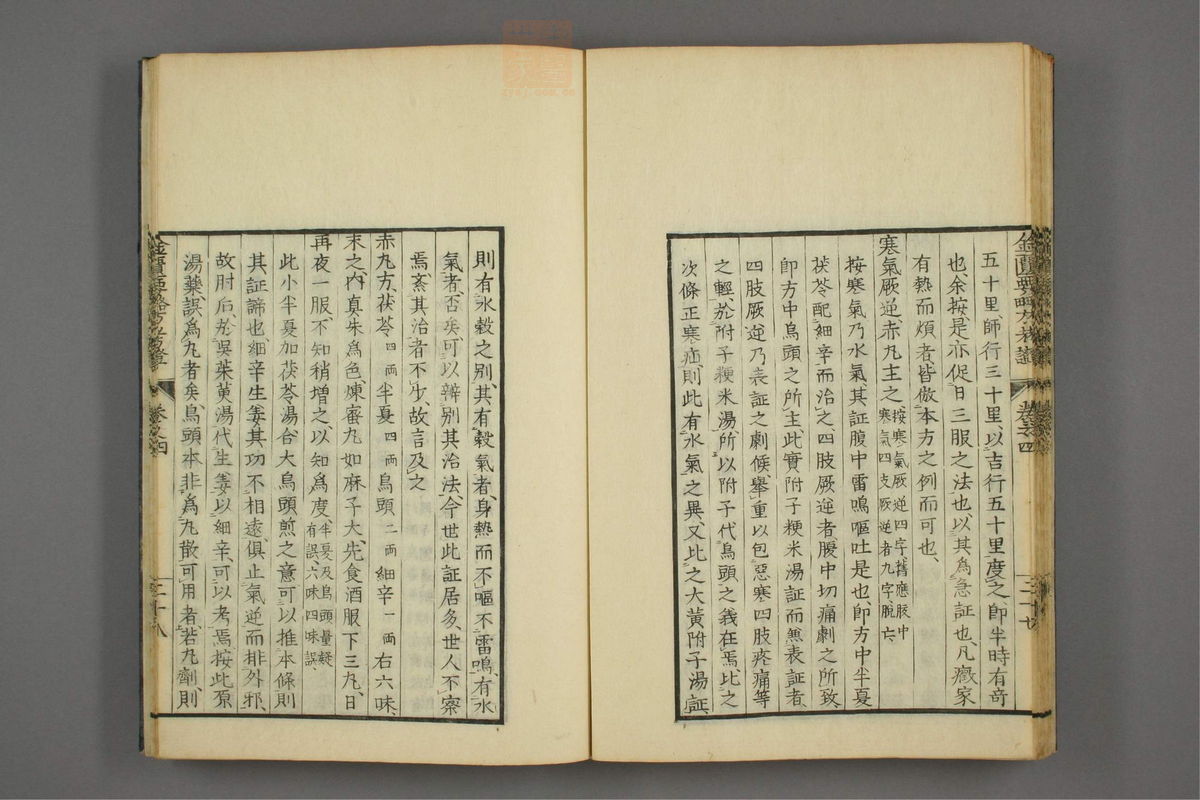 五十里、師行三十里、以吉行五十里度之、即半時有奇
也、余按、是亦促日三服之法也、以其爲急証也、凡癥家
有熱而煩者、皆倣本方之例而可也、
寒氣厥逆、赤丸主之、按、寒氣厥逆四字、舊應腹中寒氣、四支厥逆者九字脫文、
按、寒氣乃水氣、其証腹中雷鳴嘔吐是也、即方中半夏
茯苓配細辛而治之、四肢厥逆者、腹中切痛劇之所致
即方中烏頭之所主、此實附子粳米湯証、而無表証者、
四肢厥逆、乃表証之劇候、舉重以包惡寒四肢疼痛等
之輕、於附子粳米湯、所以附子代烏頭之義在焉、比之
次條正寒疝、則此有水氣之異、又比之大黃附子湯証、
金匱要略
卷之四
三十七
則有水穀之別、其有穀氣者、身熱而不嘔不雷鳴、有水
氣者、否矣、可以辨別其治法、今世此証居多、世人不察
焉、紊其治者不少、故言及之
赤丸方、茯苓四兩半夏四兩烏頭二兩細辛一兩右六味、
末之、內眞朱爲色、煉蜜丸如麻子大、先食酒服下三丸、日
再夜一服、不知稍增之、以知爲度、半夏及烏頭量疑有誤、六味四味誤
此小半夏加茯苓湯合大烏頭煎之意、可以推本條則
其証諦也、細辛生姜其功不相遠、俱止氣逆而排外邪、
故肘后、於吳茱萸湯、代生姜以細辛、可以考焉、按、此原
湯藥、誤爲丸者矣、烏頭本非爲丸散可用者、若丸劑、則
金匱要略
卷之四
三十八